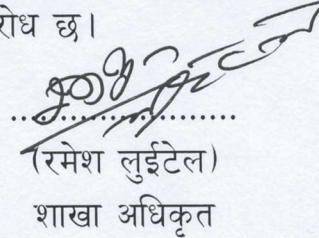 रोध छ।
....................
(रमेश लुईटेल)
शाखा अधिकृत